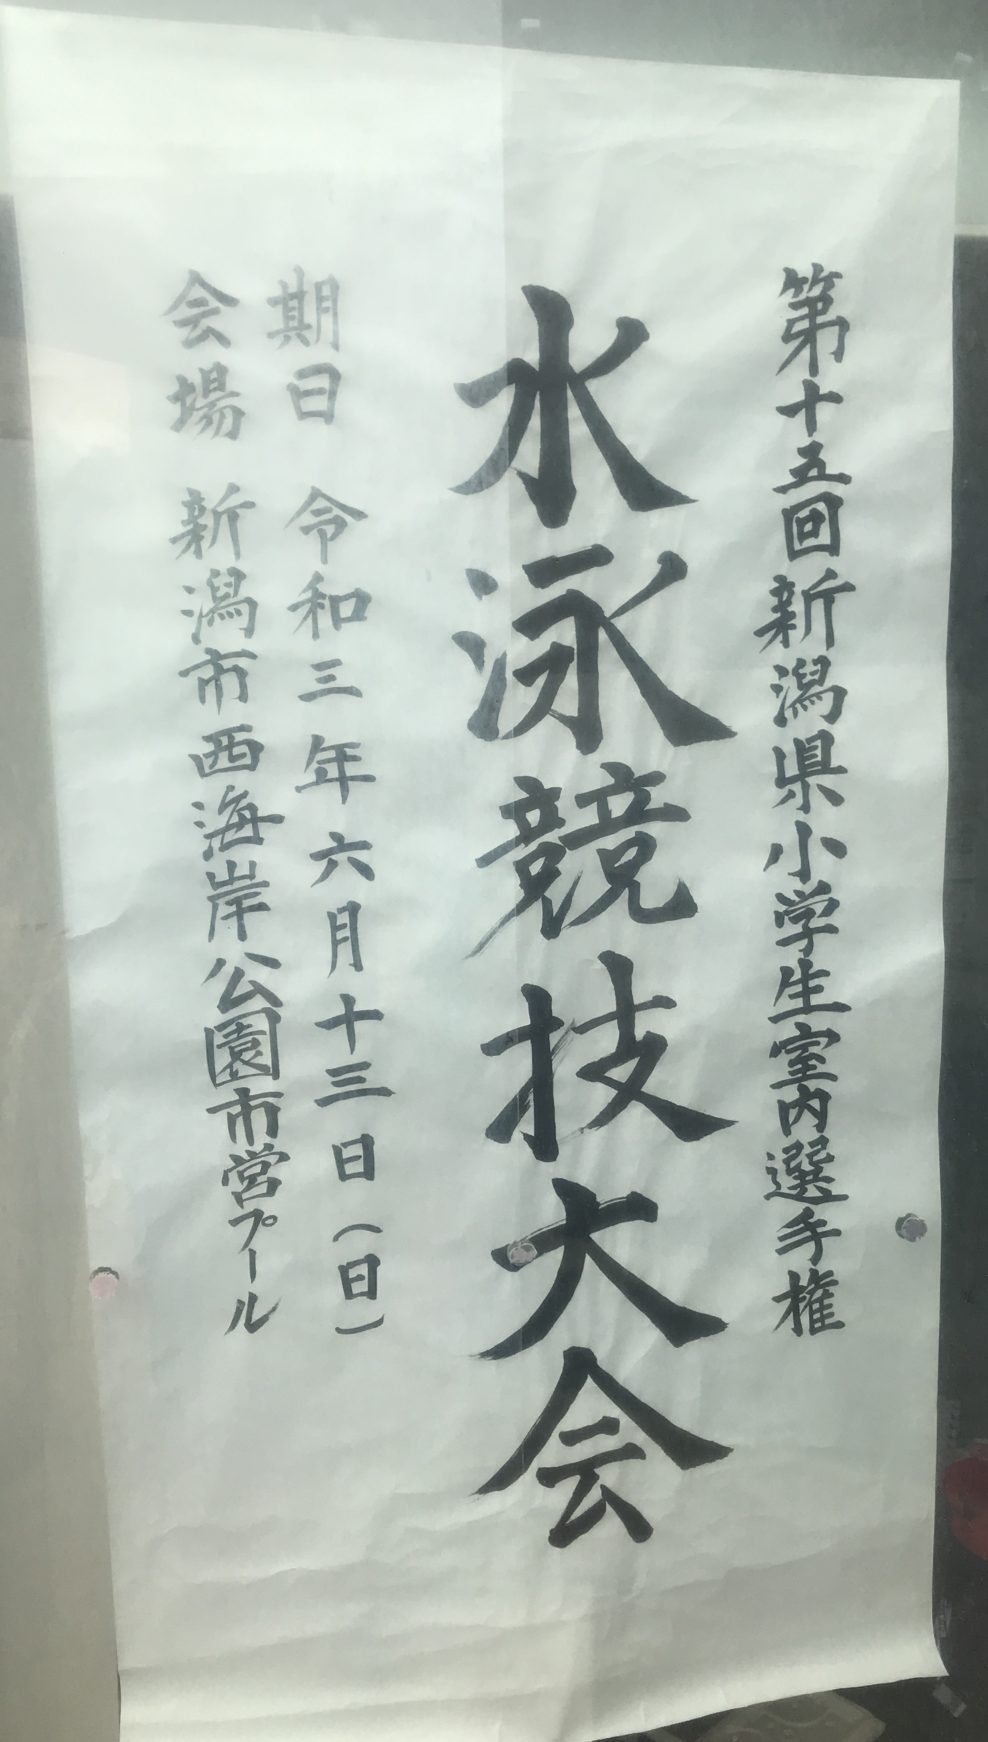 第十五回新潟県小学生室内選手権
水泳競技大会
期日 令和三年六月十三日(日)
会場 新潟市西海岸公園市営プール